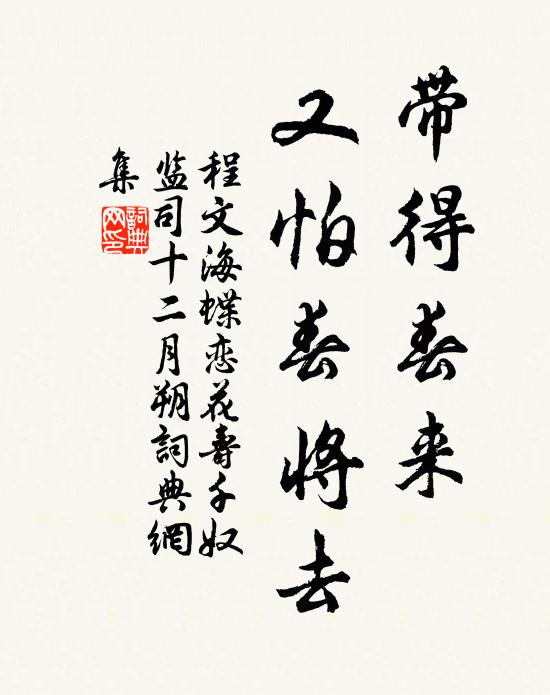 带得春来
又怕春将去
程文海蝶恋花寿千奴
监司十二月朔詞典網
集
詞典网印